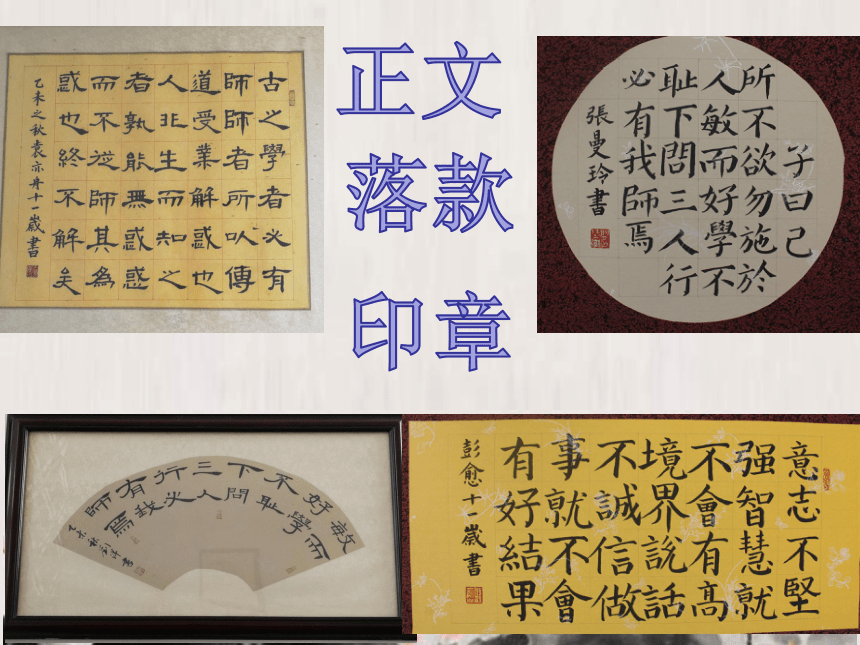 正文
落款
印章
古之學者必有
師師者所以傳
道受業解惑也
人非生而知之
者孰能無惑惑
而不從師其為
惑也終不解矣
乙未之秋袁亦舟十一歲書
子曰己
所不欲勿施於
人敏而好學不
耻下問三人行
必有我師焉
張曼玲書
敏而
好學
不耻
下問
三人
行必
有我
師焉
乙未秋劉書
意志不堅
强智慧就
不會有高
境界說話
不誠信做
事就不會
有好結果
彭愈十一歲書